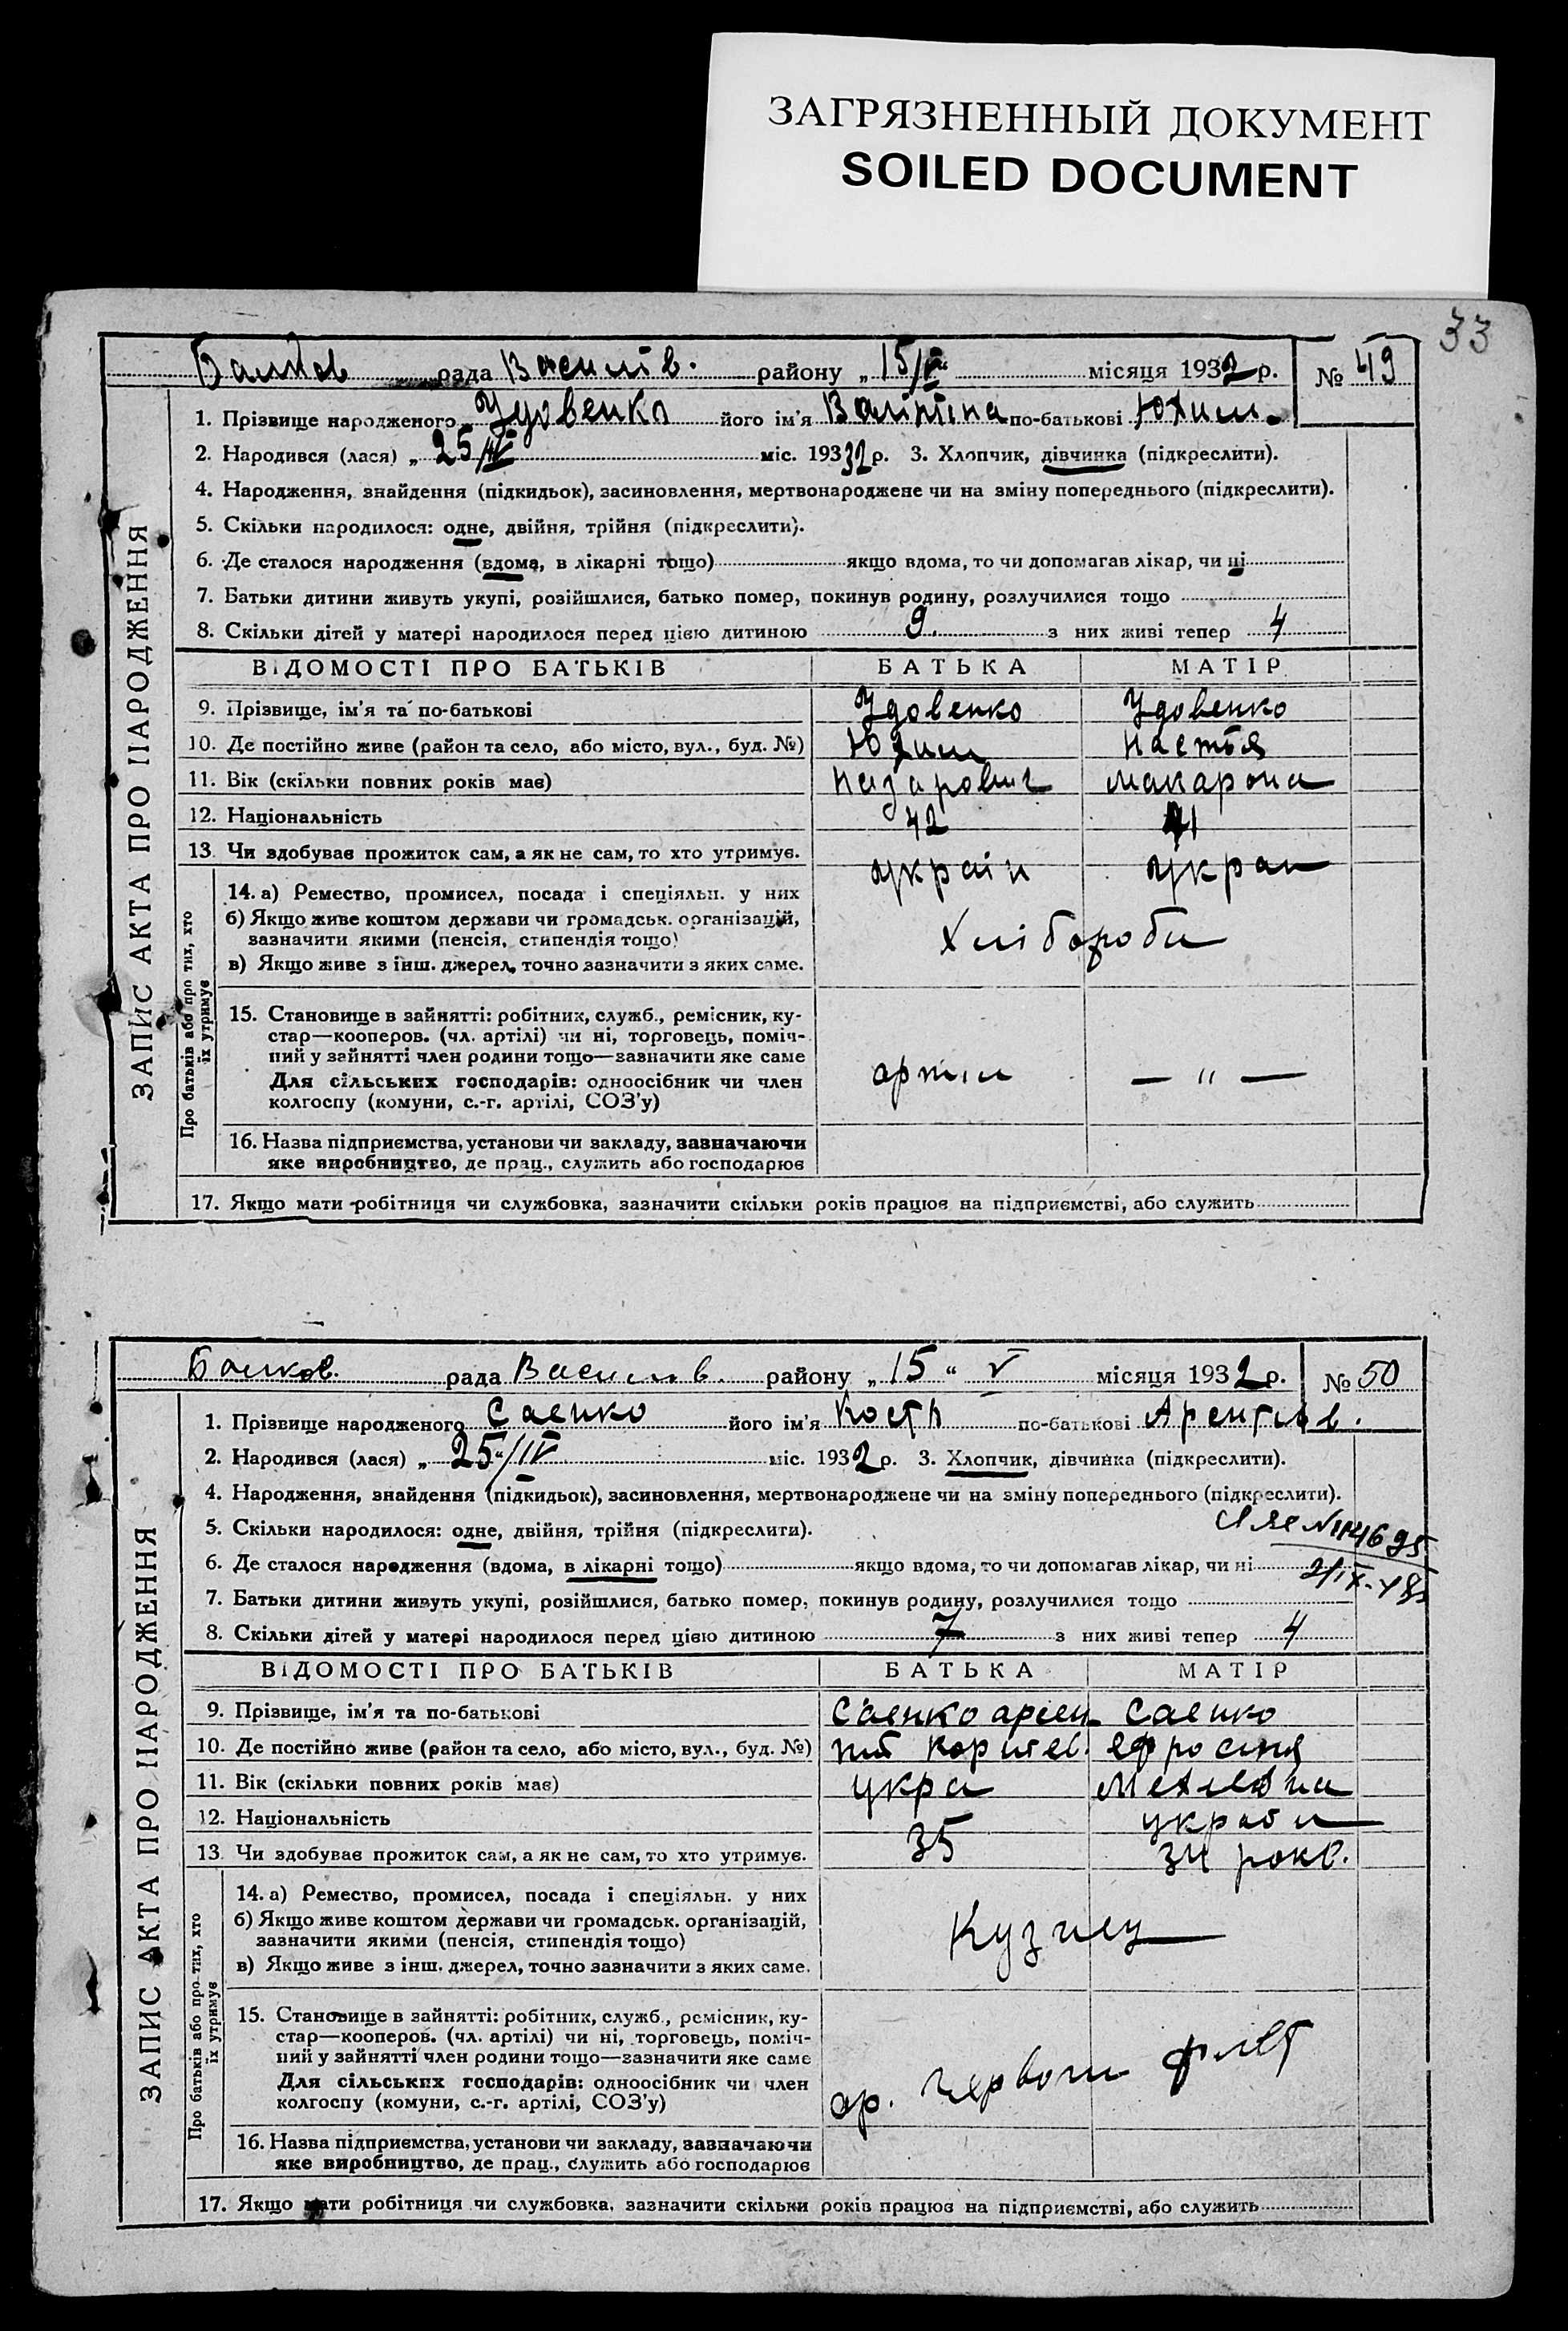 ЗАГРЯЗНЕННЫЙ ДОКУМЕНТ
SOILED DOCUMENT
33
Балков рада Василів. району „ 15/V “ місяця 1932 р. № 49
ЗАПИС АКТА ПРО НАРОДЖЕННЯ
1. Прізвище народженого Удовенко його ім'я Валінтіна по-батькові Юхим.
2. Народився (лася) „ 25/IV міс. 19332 р. 3. Хлопчик, дівчинка (підкреслити).
4. Народження, знайдення (підкидьок), засиновлення, мертвонароджене чи на зміну попереднього (підкреслити).
5. Скільки народилося: одне, двійня, трійня (підкреслити).
6. Де сталося народження (вдома, в лікарні тощо) якщо вдома, то чи допомагав лікар, чи ні
7. Батьки дитини живуть укупі, розійшлися, батько помер, покинув родину, розлучилися тощо
8. Скільки дітей у матері народилося перед цією дитиною 9. з них живі тепер 4
ВІДОМОСТІ ПРО БАТЬКІВ БАТЬКА МАТІР
9. Прізвище, ім'я та по-батькові Удовенко Удовенко
10. Де постійно живе (район та село, або місто, вул., буд. №) Юхим Настья
11. Вік (скільки повних років має) Назарович Макарона
12. Національність 42 41
13. Чи здобував прожиток сам, а як не сам, то хто утримує. україн украи
Про батьків або про тих, хто їх утримує
14. а) Ремество, промисел, посада і спеціяльн. у них
б) Якщо живе коштом держави чи громадськ. організацій,
зазначити якими (пенсія, стипендія тощо) Хлібороби
в) Якщо живе з інш. джерел, точно зазначити з яких саме.
15. Становище в зайнятті: робітник, служб., ремісник, ку-
стар—кооперов. (чл. артілі) чи ні, торговець, поміч-
ний у зайнятті член родини тощо—зазначити яке саме
Для сільських господарів: одноосібник чи член артіл — " —
колгоспу (комуни, с.-г. артілі, СОЗ'у)
16. Назва підприємства, установи чи закладу, зазначаючи
яке виробництво, де прац., служить або господарює
17. Якщо мати робітниця чи службовка, зазначити скільки років працює на підприємстві, або служить
Балков. рада Василів. району „ 15 “ V місяця 1932 р. № 50
ЗАПИС АКТА ПРО НАРОДЖЕННЯ
1. Прізвище народженого Саєнко його ім'я по-батькові
2. Народився (лася) „ 25“/IV міс. 1932 р. 3. Хлопчик, дівчинка (підкреслити).
4. Народження, знайдення (підкидьок), засиновлення, мертвонароджене чи на зміну попереднього (підкреслити).
5. Скільки народилося: одне, двійня, трійня (підкреслити).
6. Де сталося народження (вдома, в лікарні тощо) якщо вдома, то чи допомагав лікар, чи ні
7. Батьки дитини живуть укупі, розійшлися, батько помер, покинув родину, розлучилися тощо
8. Скільки дітей у матері народилося перед цією дитиною 7 з них живі тепер 4
ВІДОМОСТІ ПРО БАТЬКІВ БАТЬКА МАТІР
9. Прізвище, ім'я та по-батькові Саенко Саенко
10. Де постійно живе (район та село, або місто, вул., буд. №)
11. Вік (скільки повних років має) укра
12. Національність 35
13. Чи здобував прожиток сам, а як не сам, то хто утримує. 34 рокі.
Про батьків або про тих, хто їх утримує
14. а) Ремество, промисел, посада і спеціяльн. у них
б) Якщо живе коштом держави чи громадськ. організацій,
зазначити якими (пенсія, стипендія тощо) Кузнец
в) Якщо живе з інш. джерел, точно зазначити з яких саме.
15. Становище в зайнятті: робітник, служб., ремісник, ку-
стар—кооперов. (чл. артілі) чи ні, торговець, поміч-
ний у зайнятті член родини тощо—зазначити яке саме
Для сільських господарів: одноосібник чи член
колгоспу (комуни, с.-г. артілі, СОЗ'у) ар. Червони
16. Назва підприємства, установи чи закладу, зазначаючи
яке виробництво, де прац., служить або господарює
17. Якщо мати робітниця чи службовка, зазначити скільки років працює на підприємстві, або служить